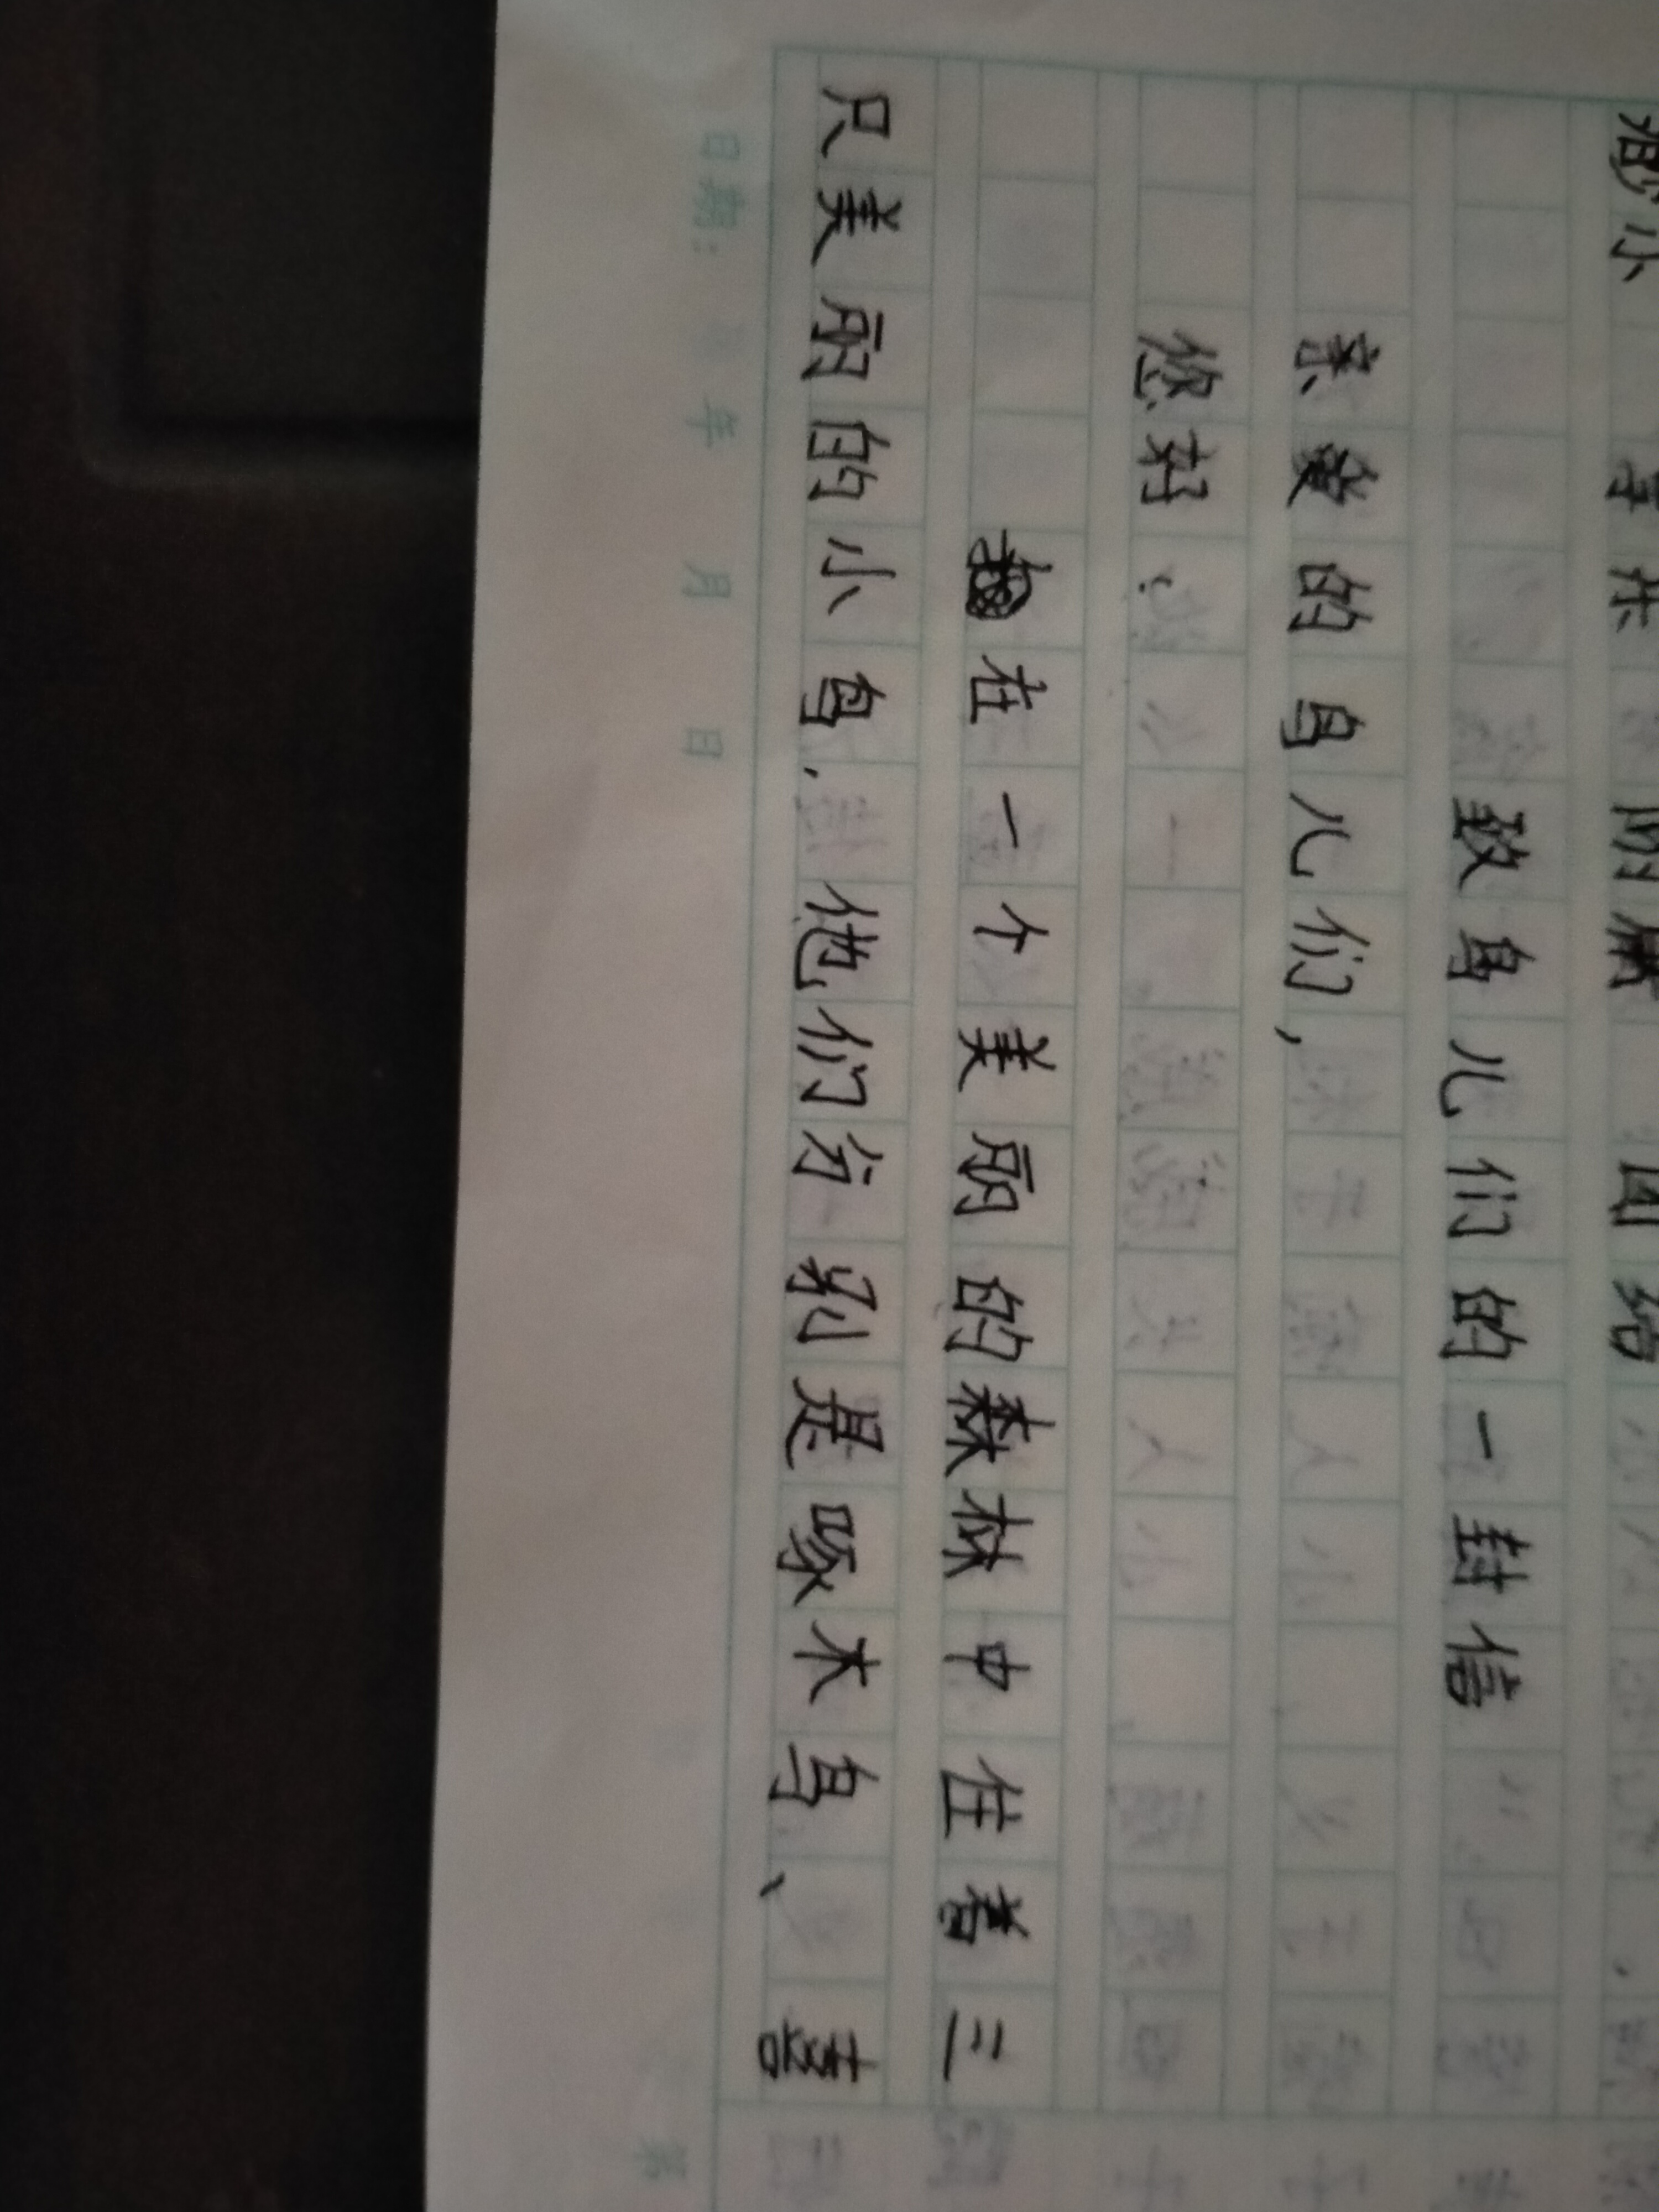 致鸟儿们的一封信
亲爱的鸟儿们,
您好!
在一个美丽的森林中住着三
只美丽的小鸟.他们分别是啄木鸟、喜
日期: 年 月 日